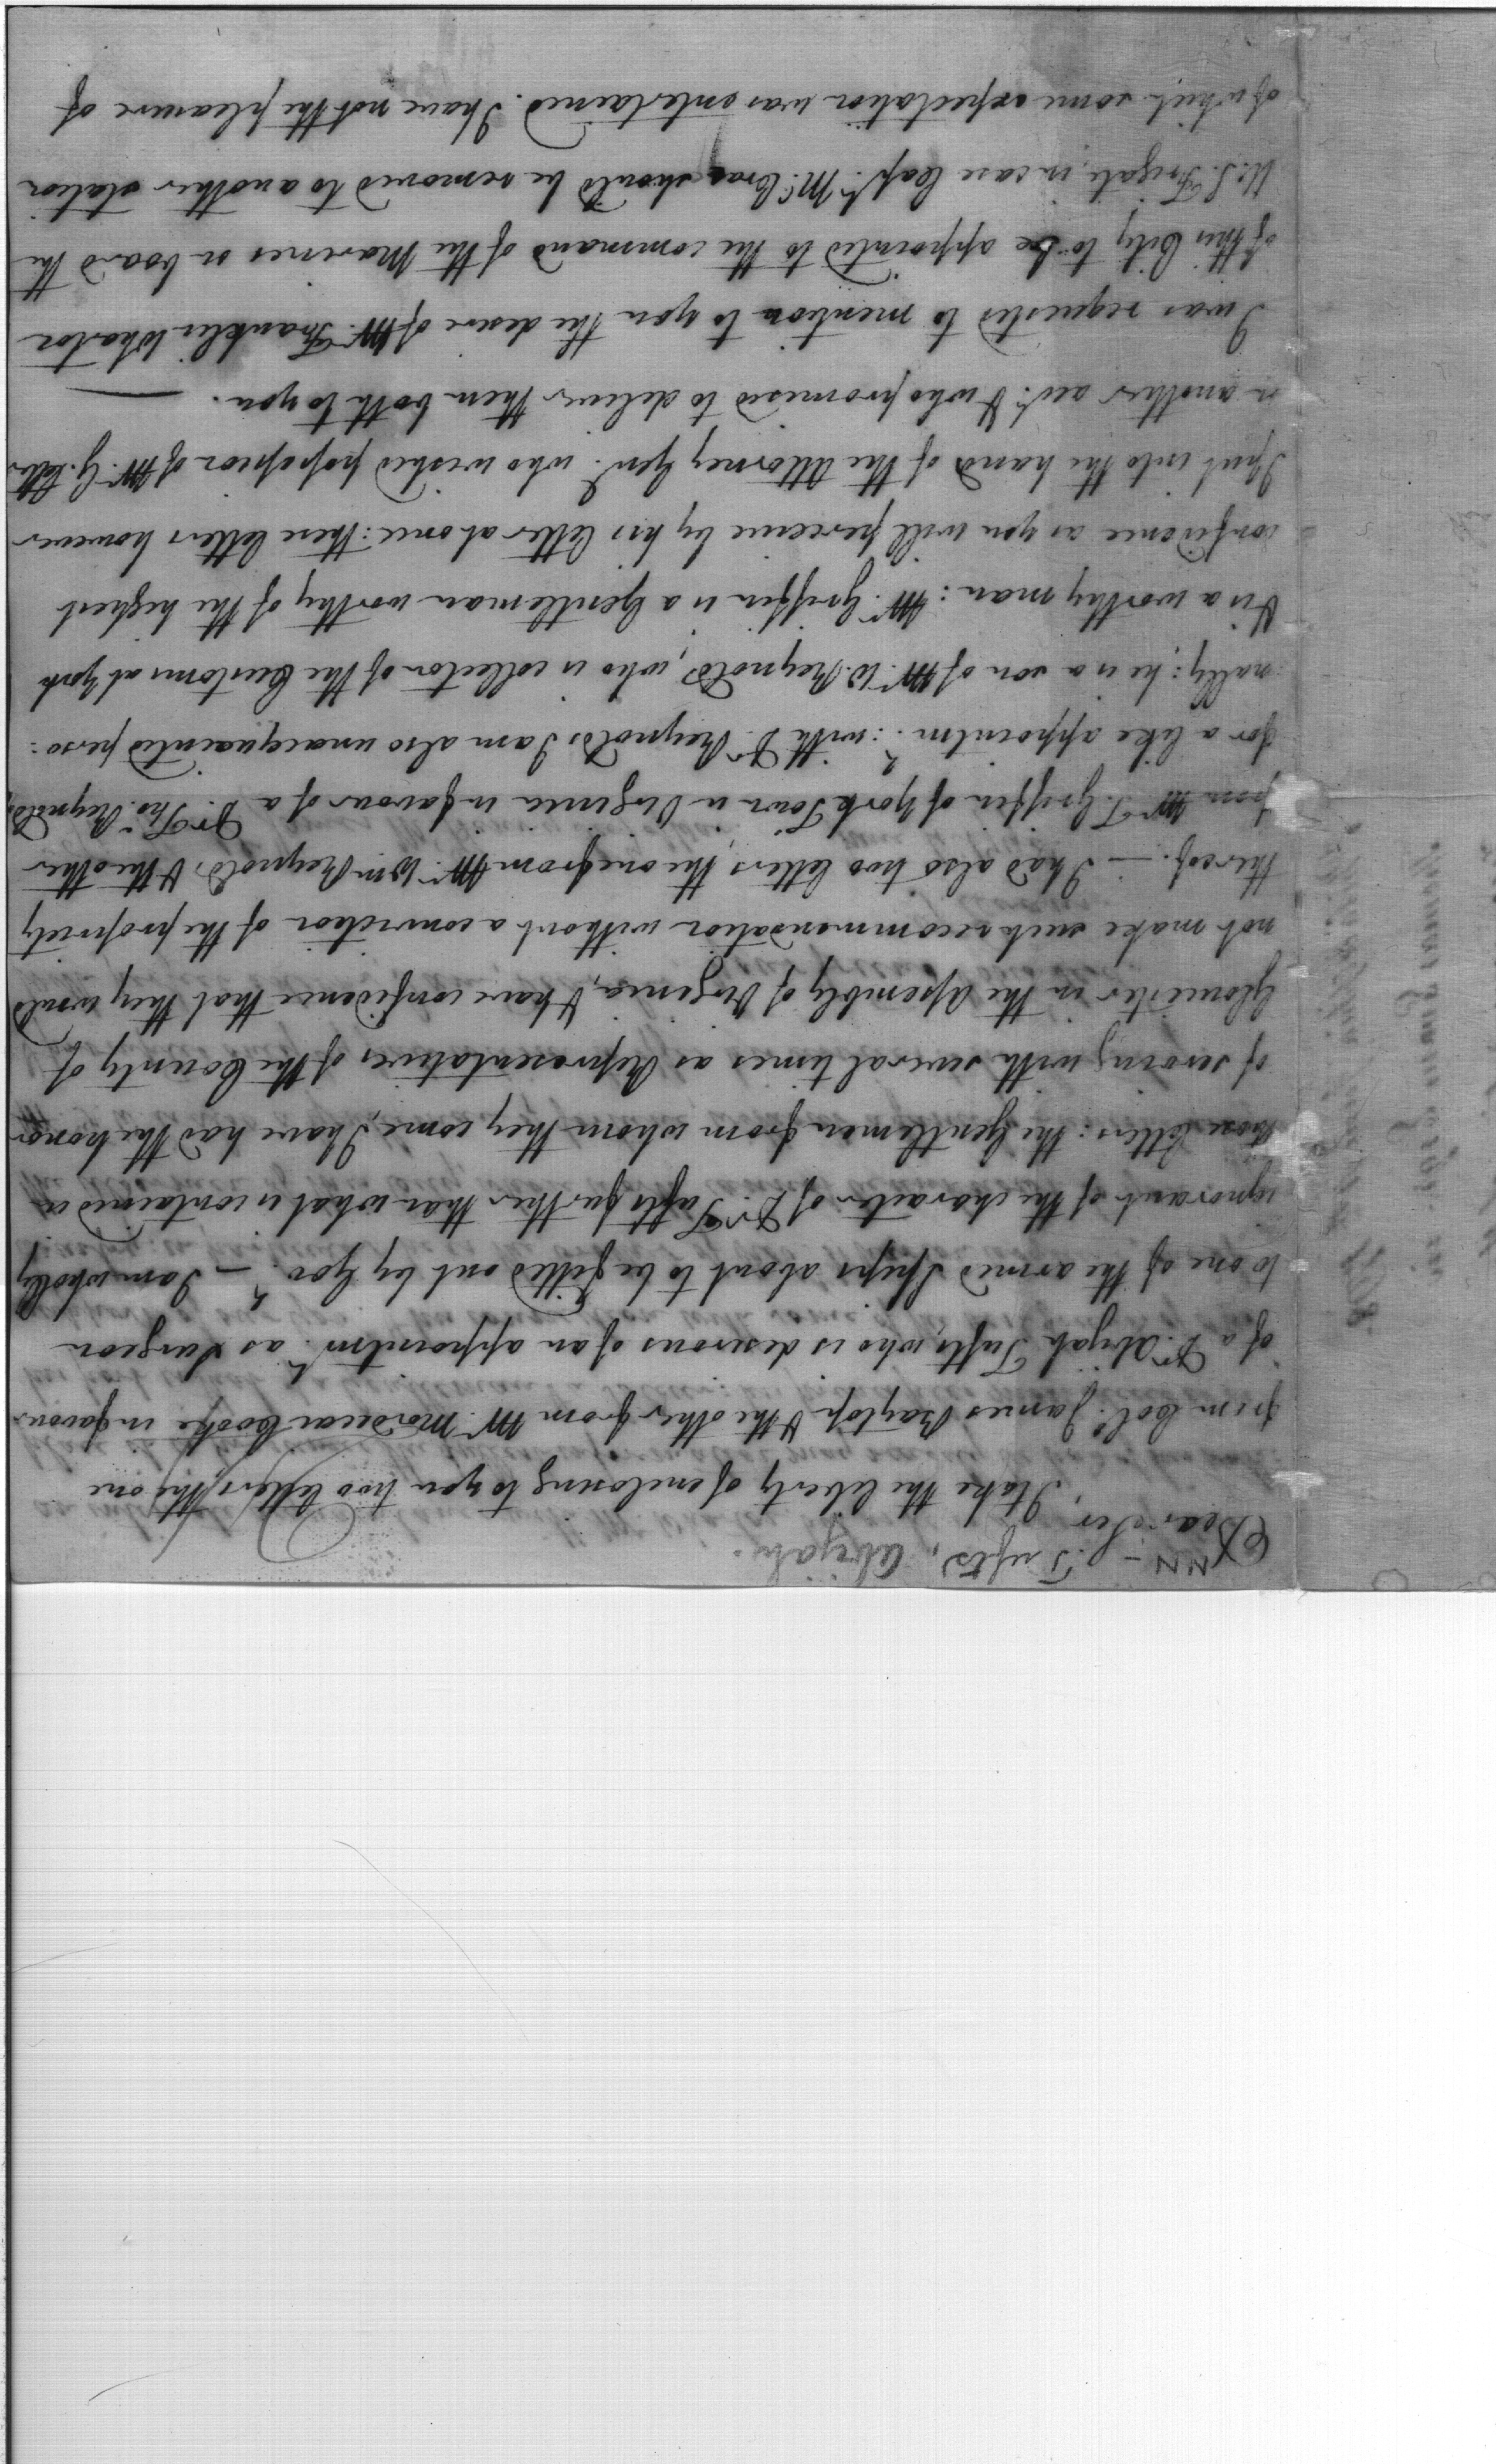 NN - Tufts, Abijah.
Dear Sir,
I take the liberty of enclosing to you two letters, the one
from Col.º James Baytop & the other from Mr. Mordecai Cooke in favour
of a Dr. Abijah Tufts, who is desirous of an appointm.t as Surgeon
to one of the armed Ships about to be fitted out by Gov.t — I am wholly
ignorant of the character of Dr. Tufts further than what is contained in
those letters: the Gentlemen from whom they come, I have had the honor
of serving with several times as Representatives of the County of
Gloucester in the Assembly of Virginia, & have confidence that they would
not make such recommendation without a conviction of the propriety
thereof. — I had also two letters, the one from Mr. Wm Reynolds, & the other
from Mr T. Griffin of York Town in Virginia in favour of a Dr. Tho.s Reynolds,
for a like appointm.t: with Dr. Reynolds I am also unacquainted perso:
nally: he is a son of Mr W. Reynolds, who is collector of the Customs at York
& is a worthy man: Mr. Griffin is a Gentleman worthy of the highest
confidence as you will perceive by his letter at once: these letters however
I put into the hand of the Attorney Gen.l who wished possession of Mr. G. letter
on another acc.t & who promised to deliver them both to you. —
I was requested to mention to you the desire of Mr. Franklin Wharton
of this City to be appointed to the command of the Marines on board the
U.S. Frigate, in case Cap.t McCrea should be removed to another station
of which some expectation was entertained. I have not the pleasure of